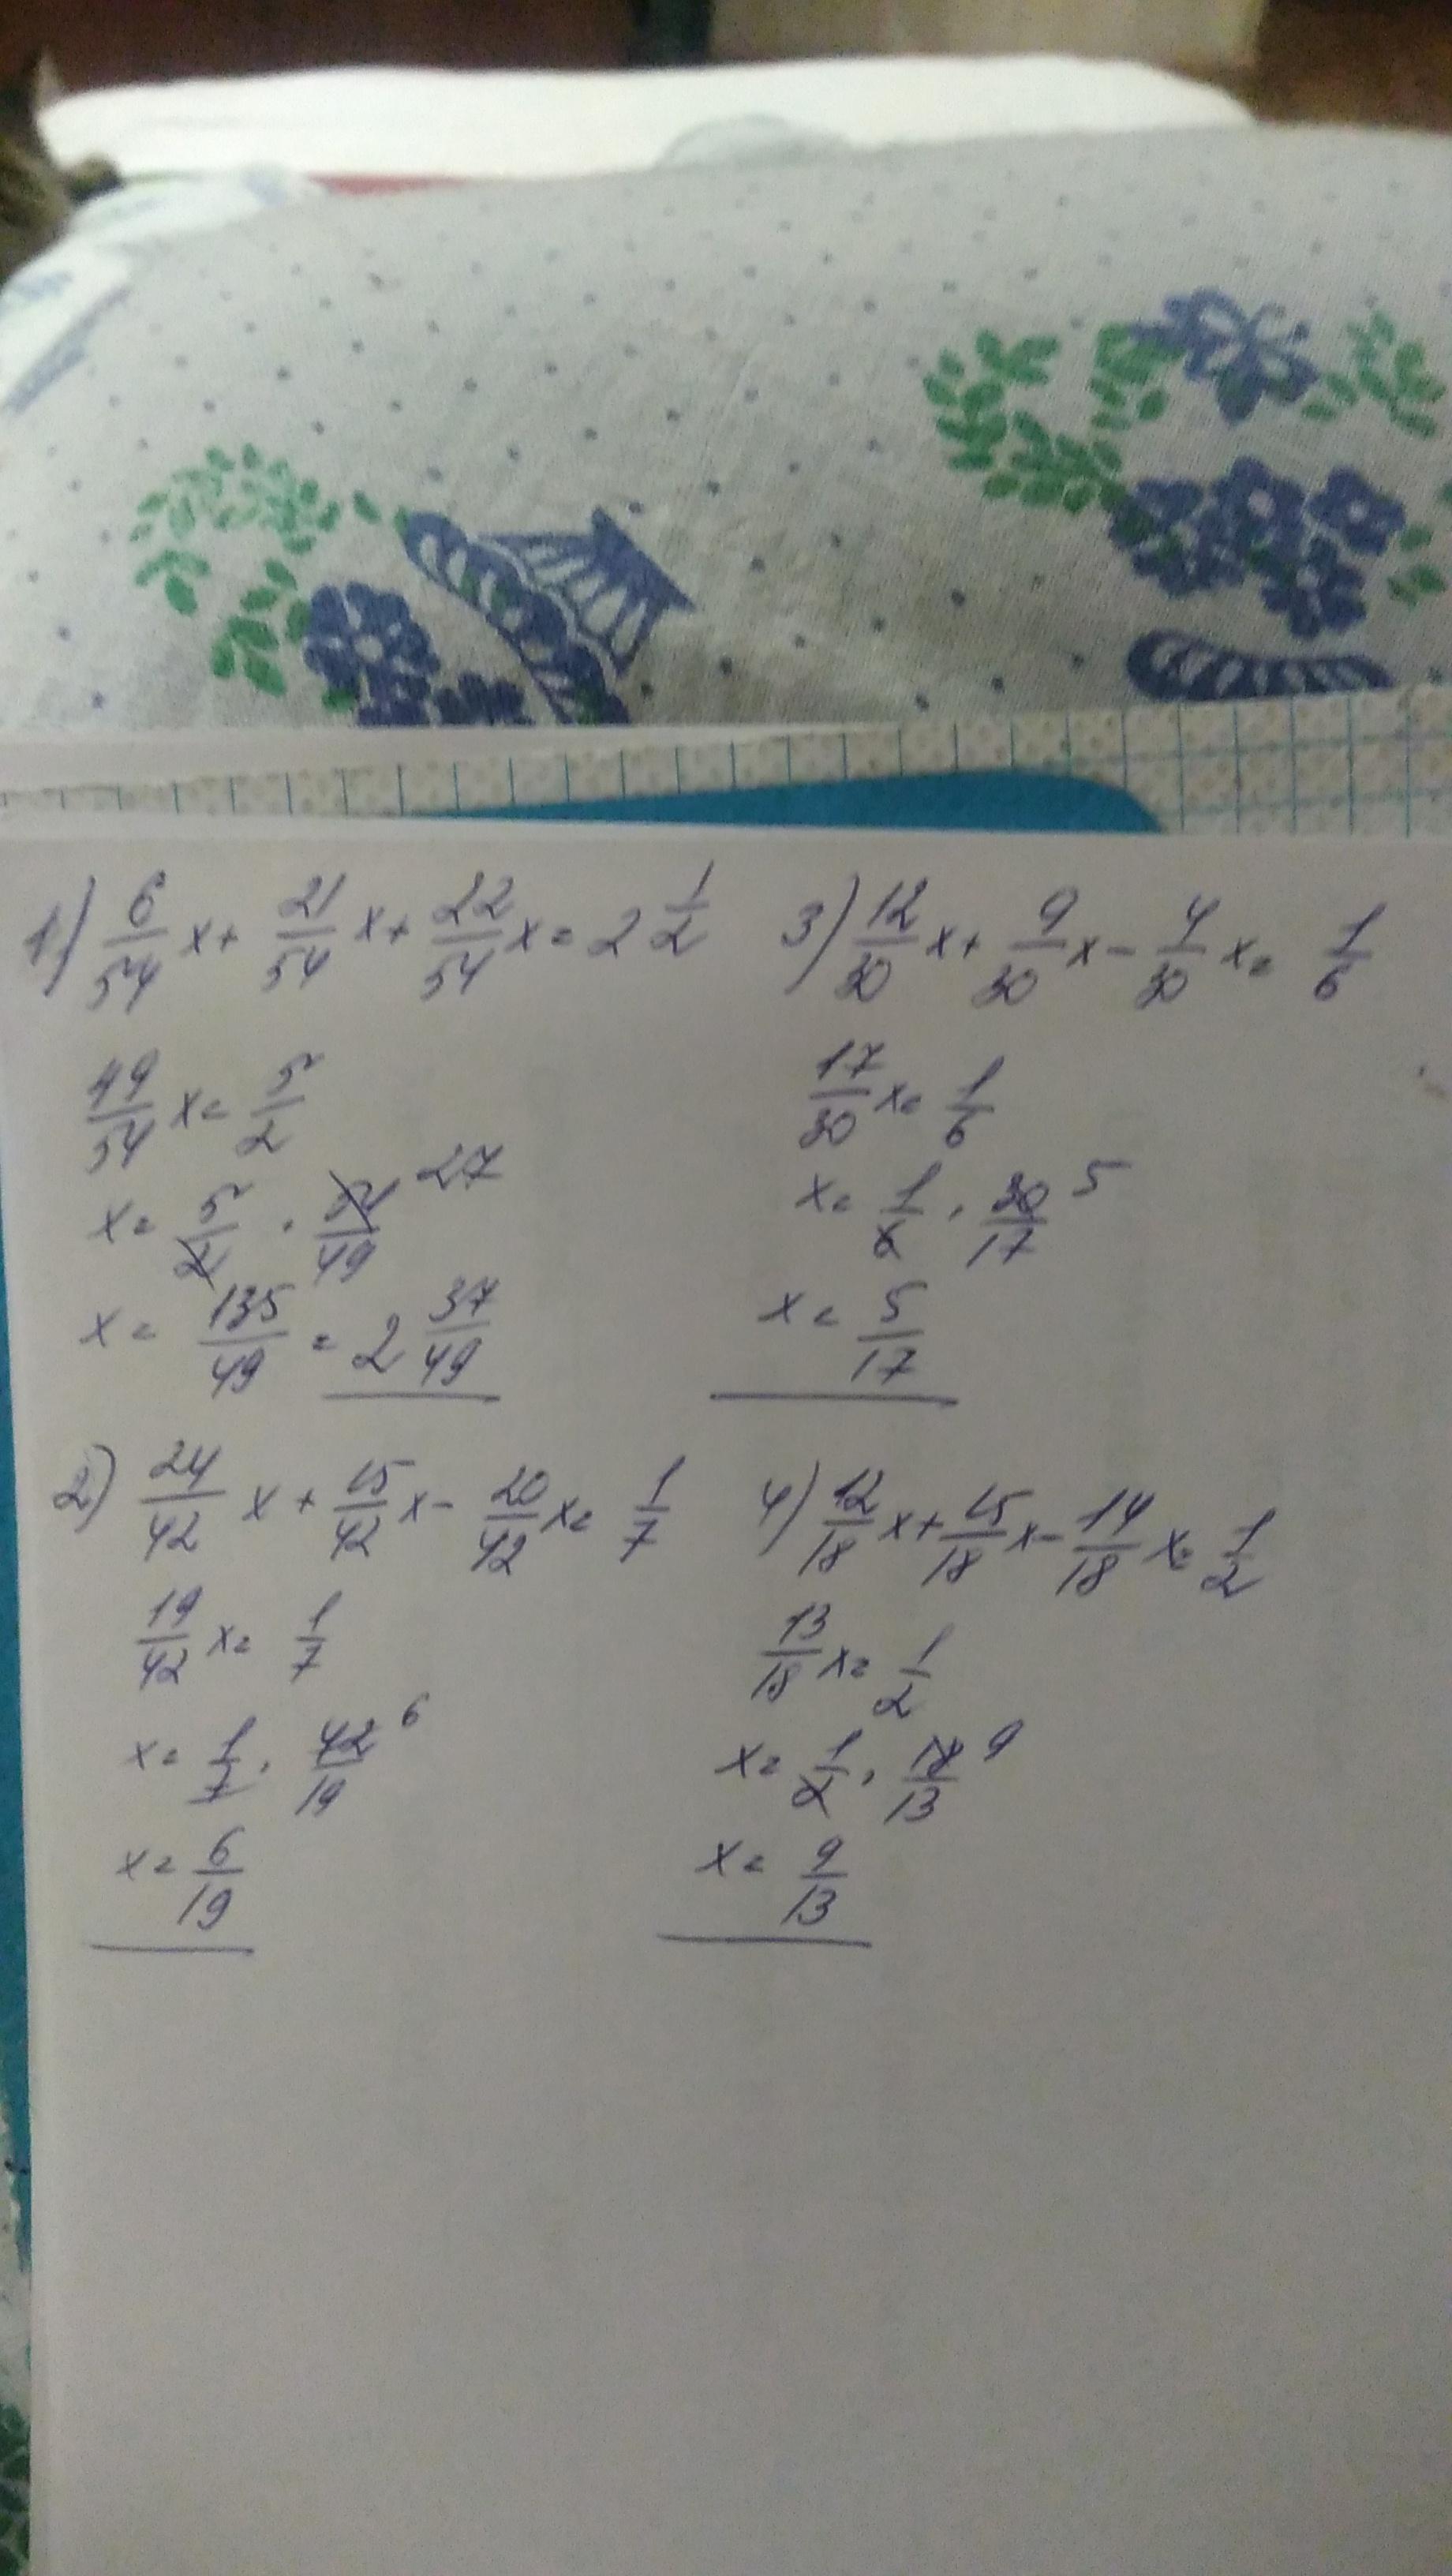 1) 6/54 x + 21/54 x + 22/54 x = 2 1/2
49/54 x = 5/2
x = 5/2 · 54/49 27
x = 135/49 = 2 37/49
2) 24/42 x + 15/42 x - 20/42 x = 1/7
19/42 x = 1/7
x = 1/7 · 42/19 6
x = 6/19
3) 12/30 x + 9/30 x - 4/30 x = 1/6
17/30 x = 1/6
x = 1/6 · 30/17 5
x = 5/17
4) 12/18 x + 15/18 x - 14/18 x = 1/2
13/18 x = 1/2
x = 1/2 · 18/13 9
x = 9/13